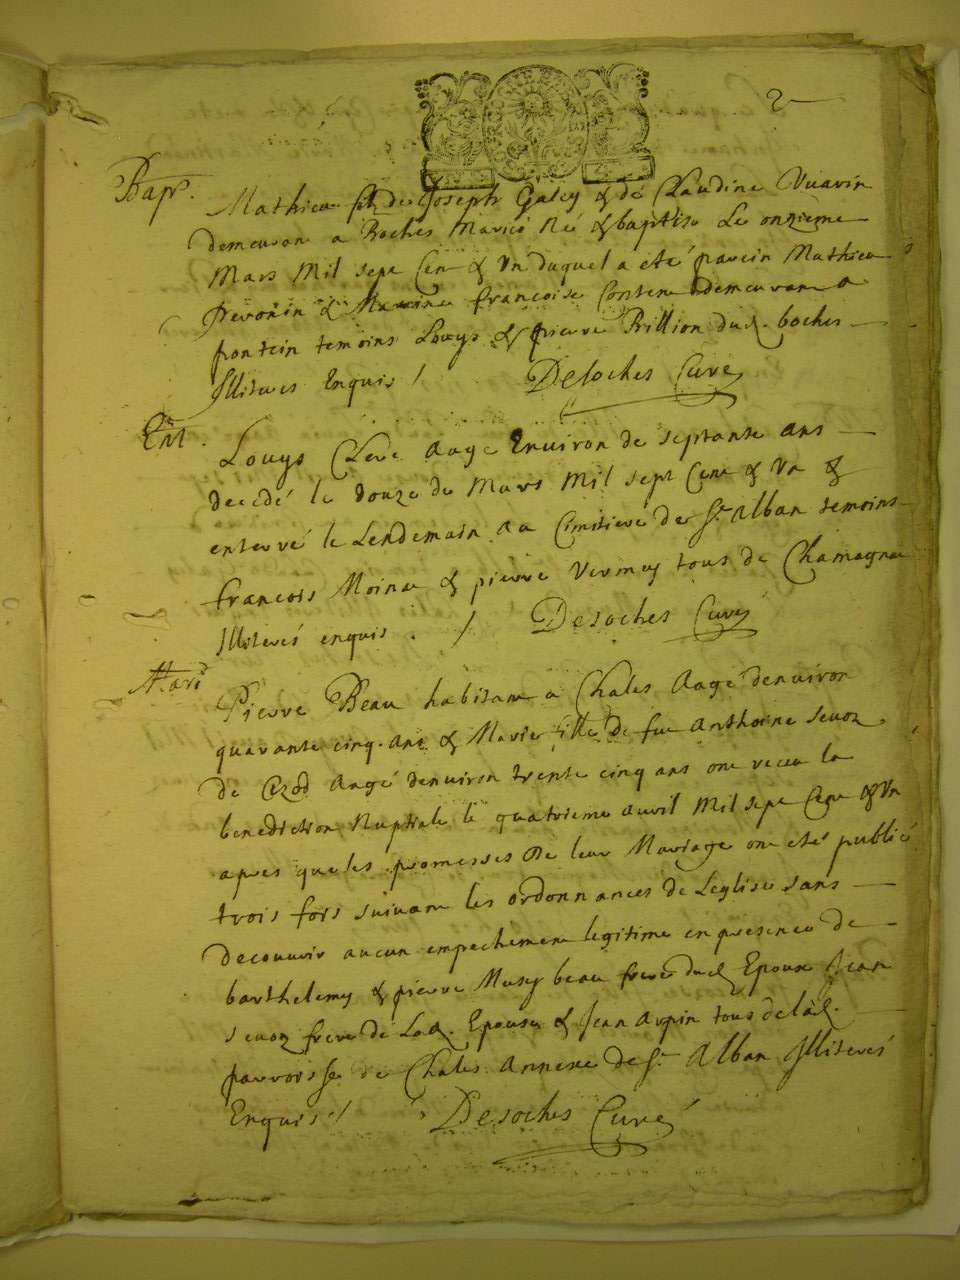 2
Bapt.
Mathieu fil de Joseph Galey & de Claudine Vuarin
demeurans a Roches Mariés Né & baptisé Le onzième
Mars Mil sept Cent & Un duquel a eté parein Mathieu
& Marine francoise demeurans a
pontein temoins Louys & pierre Rillion dud. Roches
Illiteres Enquis / Desoches Curé
Ent.
Louys Clere Aagé Environ de septante ans
decedé le douze de Mars Mil sept Cent & Un &
enterré le Lendemain au Cimitiere de St. Alban temoins
francois Moine & pierre Vermey tous de Chamagneu
Illiterés enquis. / Desoches Curé
Mari
Pierre Beau habitant a Chales Aagé denuiron
quarante cinq ans & Marie fille de feu Anthoine seuoz
de Cizod Aagé denuiron trente cinq ans ont receu la
benediction Nuptiale le quatrieme auril Mil sept Cent & Un
apres que les promesses De leur Mariage ont eté publié
trois fois suiuant les ordonnances de Leglise sans
Decouurir aucun empechement legitime en presence de
barthelemy & pierre Musy beau frere dud Epoux Jean
seuoz frere de Lad. Epouse & Jean Arpin tous de lad.
parroisse de Chales Annexe de St. Alban Illiterés
Enquis / Desoches Curé